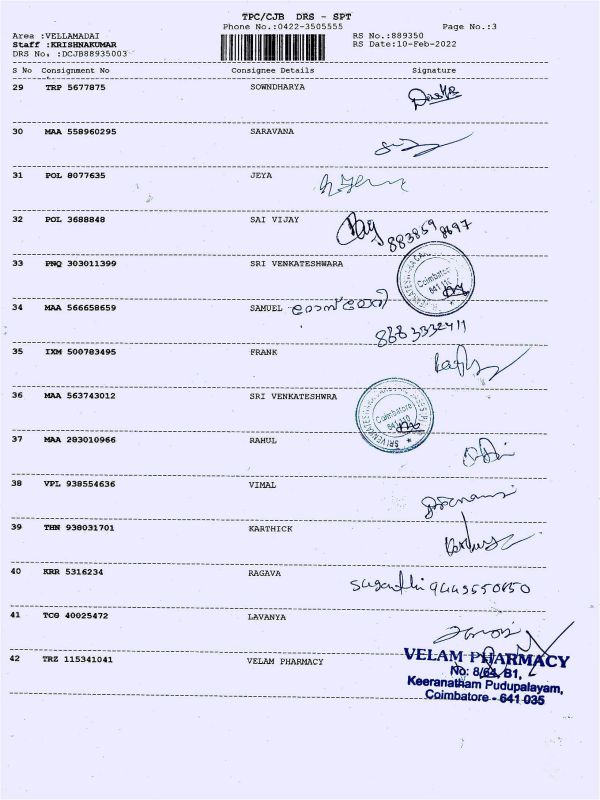 TPC/CJB DRS - SPT
Phone No.:0422-3505555 Page No.:3
Area :VELLAMADAI RS No.:889350
Staff :KRISHNAKUMAR RS Date:10-Feb-2022
DRS No. :DCJB88935003
S No Consignment No Consignee Details Signature
29 TRP 5677875 SOWNDHARYA
30 MAA 558960295 SARAVANA
31 POL 8077635 JEYA
32 POL 3688848 SAI VIJAY
883859 8697
33 PNQ 303011399 SRI VENKATESHWARA
Coimbatore
641 110
34 MAA 566658659 SAMUEL
8883332411
35 IXM 500783495 FRANK
36 MAA 563743012 SRI VENKATESHWRA
Coimbatore
641 110
37 MAA 283010966 RAHUL
38 VPL 938554636 VIMAL
39 THN 938031701 KARTHICK
40 KRR 5316234 RAGAVA
sugandhi 9443550650
41 TCG 40025472 LAVANYA
42 TRZ 115341041 VELAM PHARMACY
VELAM PHARMACY
No: 8/64, B1,
Keeranatham Pudupalayam,
Coimbatore - 641 035